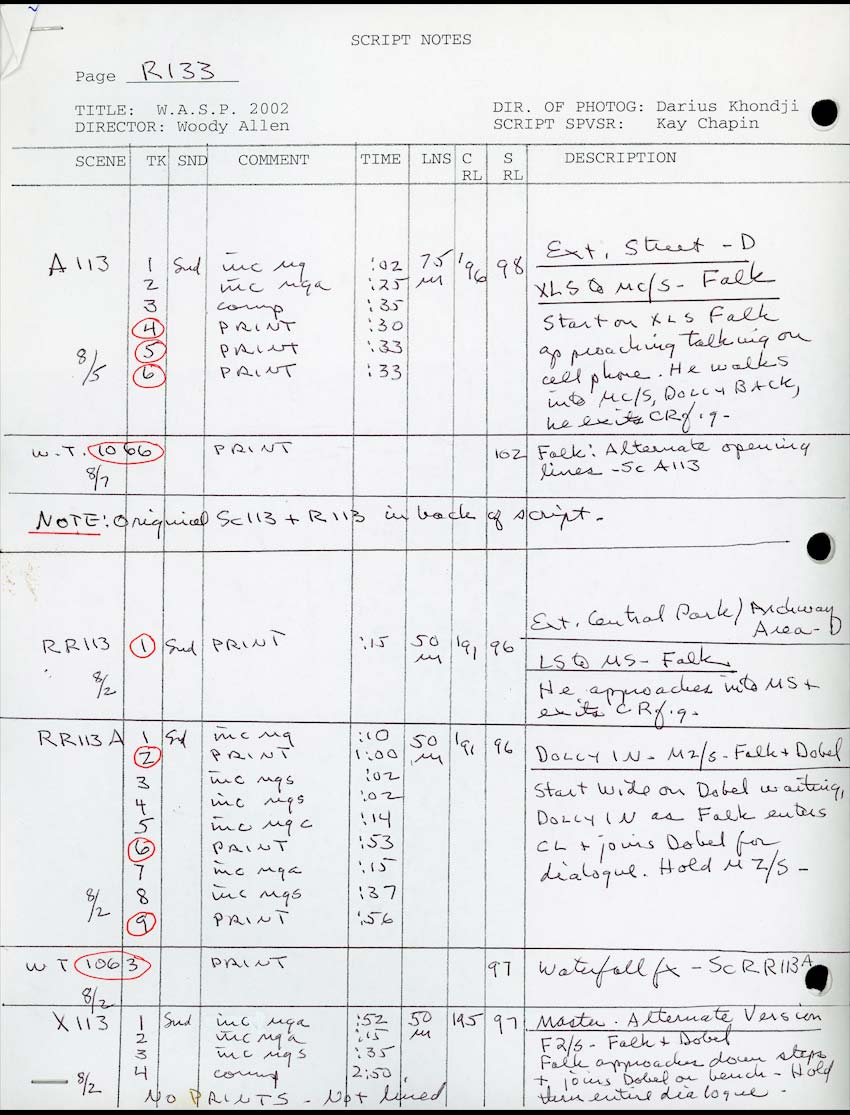 SCRIPT NOTES
Page R133
TITLE: W.A.S.P. 2002
DIRECTOR: Woody Allen
DIR. OF PHOTOG: Darius Khondji
SCRIPT SPVSR: Kay Chapin
SCENE TK SND COMMENT TIME LNS C RL S RL DESCRIPTION
Ext. Street - D
A113 1 Snd inc ng :02 75 m 196 98
2 inc nga :25
XLS to MC/S - Falk
3 comp :35
4 PRINT :30
Start on XLS Falk
8/5 5 PRINT :33
approaching talking on
6 PRINT :33
cell phone. He walks
into MC/S, DOLLY BACK,
he exits CRf.g.
W.T. 1066 PRINT 102 Falk: Alternate opening
8/7 lines - Sc A113
NOTE: Origuical Sc113 + R113 in back of script.
Ext. Central Park / Archway
Area - D
RR113 1 Snd PRINT :15 50 m 191 96
LS to MS - Falk
8/2
He approaches into MS +
exits CRf.g.
RR113A 1 Sd inc ng :10 50 m 191 96
2 PRINT 1:00
DOLLY IN - M2/S - Falk + Dobel
3 inc ngs :02
Start Wide on Dobel waiting,
4 inc ngs :02
DOLLY IN as Falk enters
5 inc ngc :14
CL + joins Dobel for
6 PRINT :53
dialogue. Hold M2/S -
7 inc nga :15
8/2 8 inc ngs :37
9 PRINT :56
WT 1063 PRINT 97 Waterfall fx - Sc RR113A
8/2
X113 1 Snd inc nga :52 50 m 195 97 Master. Alternate Version
2 inc nga :15
F2/S - Falk + Dobel
3 inc ngs :35
Falk approaches down steps
8/2 4 comp 2:50
+ joins Dobel on bench - Hold
NO PRINTS - Not lined
thru entire dialogue.